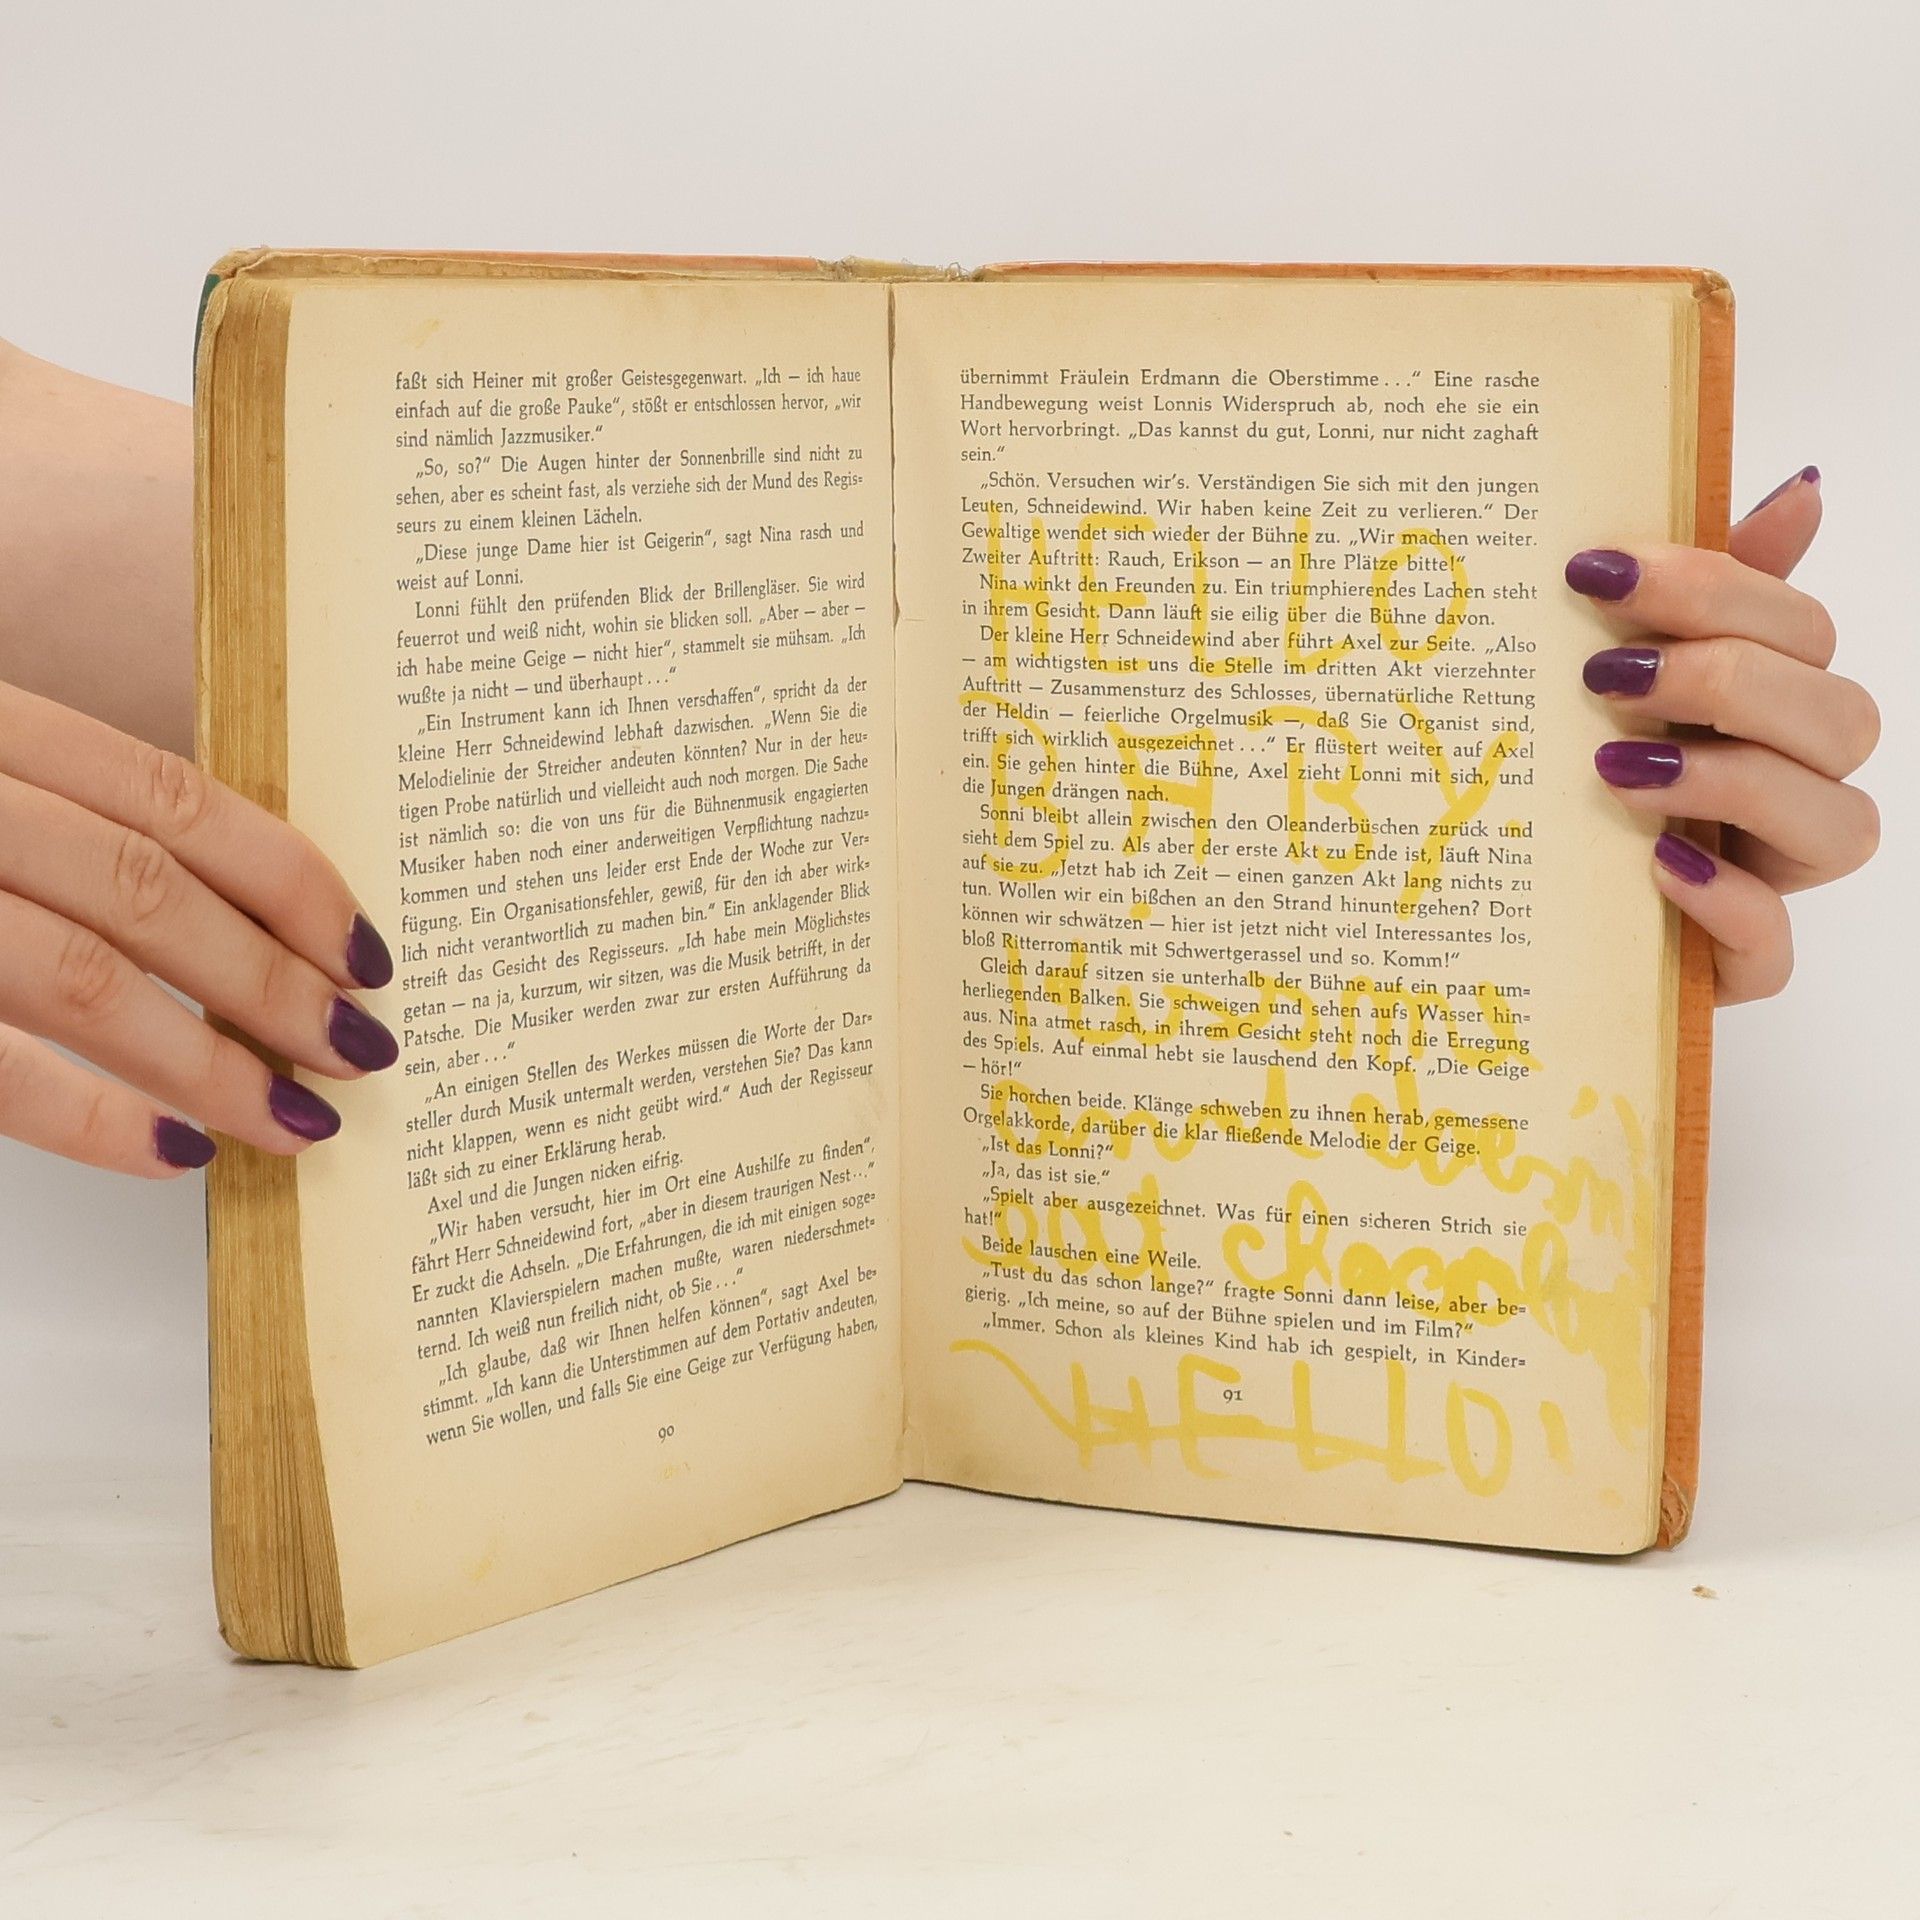 faßt sich Heiner mit großer Geistesgegenwart. „Ich – ich haue
einfach auf die große Pauke“, stößt er entschlossen hervor, „wir
sind nämlich Jazzmusiker.“
„So, so?“ Die Augen hinter der Sonnenbrille sind nicht zu
sehen, aber es scheint fast, als verziehe sich der Mund des Regis=
seurs zu einem kleinen Lächeln.
„Diese junge Dame hier ist Geigerin“, sagt Nina rasch und
weist auf Lonni.
Lonni fühlt den prüfenden Blick der Brillengläser. Sie wird
feuerrot und weiß nicht, wohin sie blicken soll. „Aber – aber –
ich habe meine Geige – nicht hier“, stammelt sie mühsam. „Ich
wußte ja nicht – und überhaupt . . .“
„Ein Instrument kann ich Ihnen verschaffen“, spricht da der
kleine Herr Schneidewind lebhaft dazwischen. „Wenn Sie die
Melodielinie der Streicher andeuten könnten? Nur in der heu=
tigen Probe natürlich und vielleicht auch noch morgen. Die Sache
ist nämlich so: die von uns für die Bühnenmusik engagierten
Musiker haben noch einer anderweitigen Verpflichtung nachzu=
kommen und stehen uns leider erst Ende der Woche zur Ver=
fügung. Ein Organisationsfehler, gewiß, für den ich aber wirk=
lich nicht verantwortlich zu machen bin.“ Ein anklagender Blick
streift das Gesicht des Regisseurs. „Ich habe mein Möglichstes
getan – na ja, kurzum, wir sitzen, was die Musik betrifft, in der
Patsche. Die Musiker werden zwar zur ersten Aufführung da
sein, aber . . .“
„An einigen Stellen des Werkes müssen die Worte der Dar=
steller durch Musik untermalt werden, verstehen Sie? Das kann
nicht klappen, wenn es nicht geübt wird.“ Auch der Regisseur
läßt sich zu einer Erklärung herab.
Axel und die Jungen nicken eifrig.
„Wir haben versucht, hier im Ort eine Aushilfe zu finden“,
fährt Herr Schneidewind fort, „aber in diesem traurigen Nest . . .“
Er zuckt die Achseln. „Die Erfahrungen, die ich mit einigen soge=
nannten Klavierspielern machen mußte, waren niederschmet=
ternd. Ich weiß nun freilich nicht, ob Sie . . .“
„Ich glaube, daß wir Ihnen helfen können“, sagt Axel be=
stimmt. „Ich kann die Unterstimmen auf dem Portativ andeuten,
wenn Sie wollen, und falls Sie eine Geige zur Verfügung haben,
90
übernimmt Fräulein Erdmann die Oberstimme . . .“ Eine rasche
Handbewegung weist Lonnis Widerspruch ab, noch ehe sie ein
Wort hervorbringt. „Das kannst du gut, Lonni, nur nicht zaghaft
sein.“
„Schön. Versuchen wir's. Verständigen Sie sich mit den jungen
Leuten, Schneidewind. Wir haben keine Zeit zu verlieren.“ Der
Gewaltige wendet sich wieder der Bühne zu. „Wir machen weiter.
Zweiter Auftritt: Rauch, Erikson — an Ihre Plätze bitte!“
Nina winkt den Freunden zu. Ein triumphierendes Lachen steht
in ihrem Gesicht. Dann läuft sie eilig über die Bühne davon.
Der kleine Herr Schneidewind aber führt Axel zur Seite. „Also
— am wichtigsten ist uns die Stelle im dritten Akt vierzehnter
Auftritt — Zusammensturz des Schlosses, übernatürliche Rettung
der Heldin — feierliche Orgelmusik —, daß Sie Organist sind,
trifft sich wirklich ausgezeichnet . . .“ Er flüstert weiter auf Axel
ein. Sie gehen hinter die Bühne, Axel zieht Lonni mit sich, und
die Jungen drängen nach.
Sonni bleibt allein zwischen den Oleanderbüschen zurück und
sieht dem Spiel zu. Als aber der erste Akt zu Ende ist, läuft Nina
auf sie zu. „Jetzt hab ich Zeit — einen ganzen Akt lang nichts zu
tun. Wollen wir ein bißchen an den Strand hinuntergehen? Dort
können wir schwätzen — hier ist jetzt nicht viel Interessantes los,
bloß Ritterromantik mit Schwertgerassel und so. Komm!“
Gleich darauf sitzen sie unterhalb der Bühne auf ein paar um=
herliegenden Balken. Sie schweigen und sehen aufs Wasser hin=
aus. Nina atmet rasch, in ihrem Gesicht steht noch die Erregung
des Spiels. Auf einmal hebt sie lauschend den Kopf. „Die Geige
— hör!“
Sie horchen beide. Klänge schweben zu ihnen herab, gemessene
Orgelakkorde, darüber die klar fließende Melodie der Geige.
„Ist das Lonni?“
„Ja, das ist sie.“
„Spielt aber ausgezeichnet. Was für einen sicheren Strich sie
hat!“
Beide lauschen eine Weile.
„Tust du das schon lange?“ fragte Sonni dann leise, aber be=
gierig. „Ich meine, so auf der Bühne spielen und im Film?“
„Immer. Schon als kleines Kind hab ich gespielt, in Kinder=
91
HELLO
BABY
HELLO!